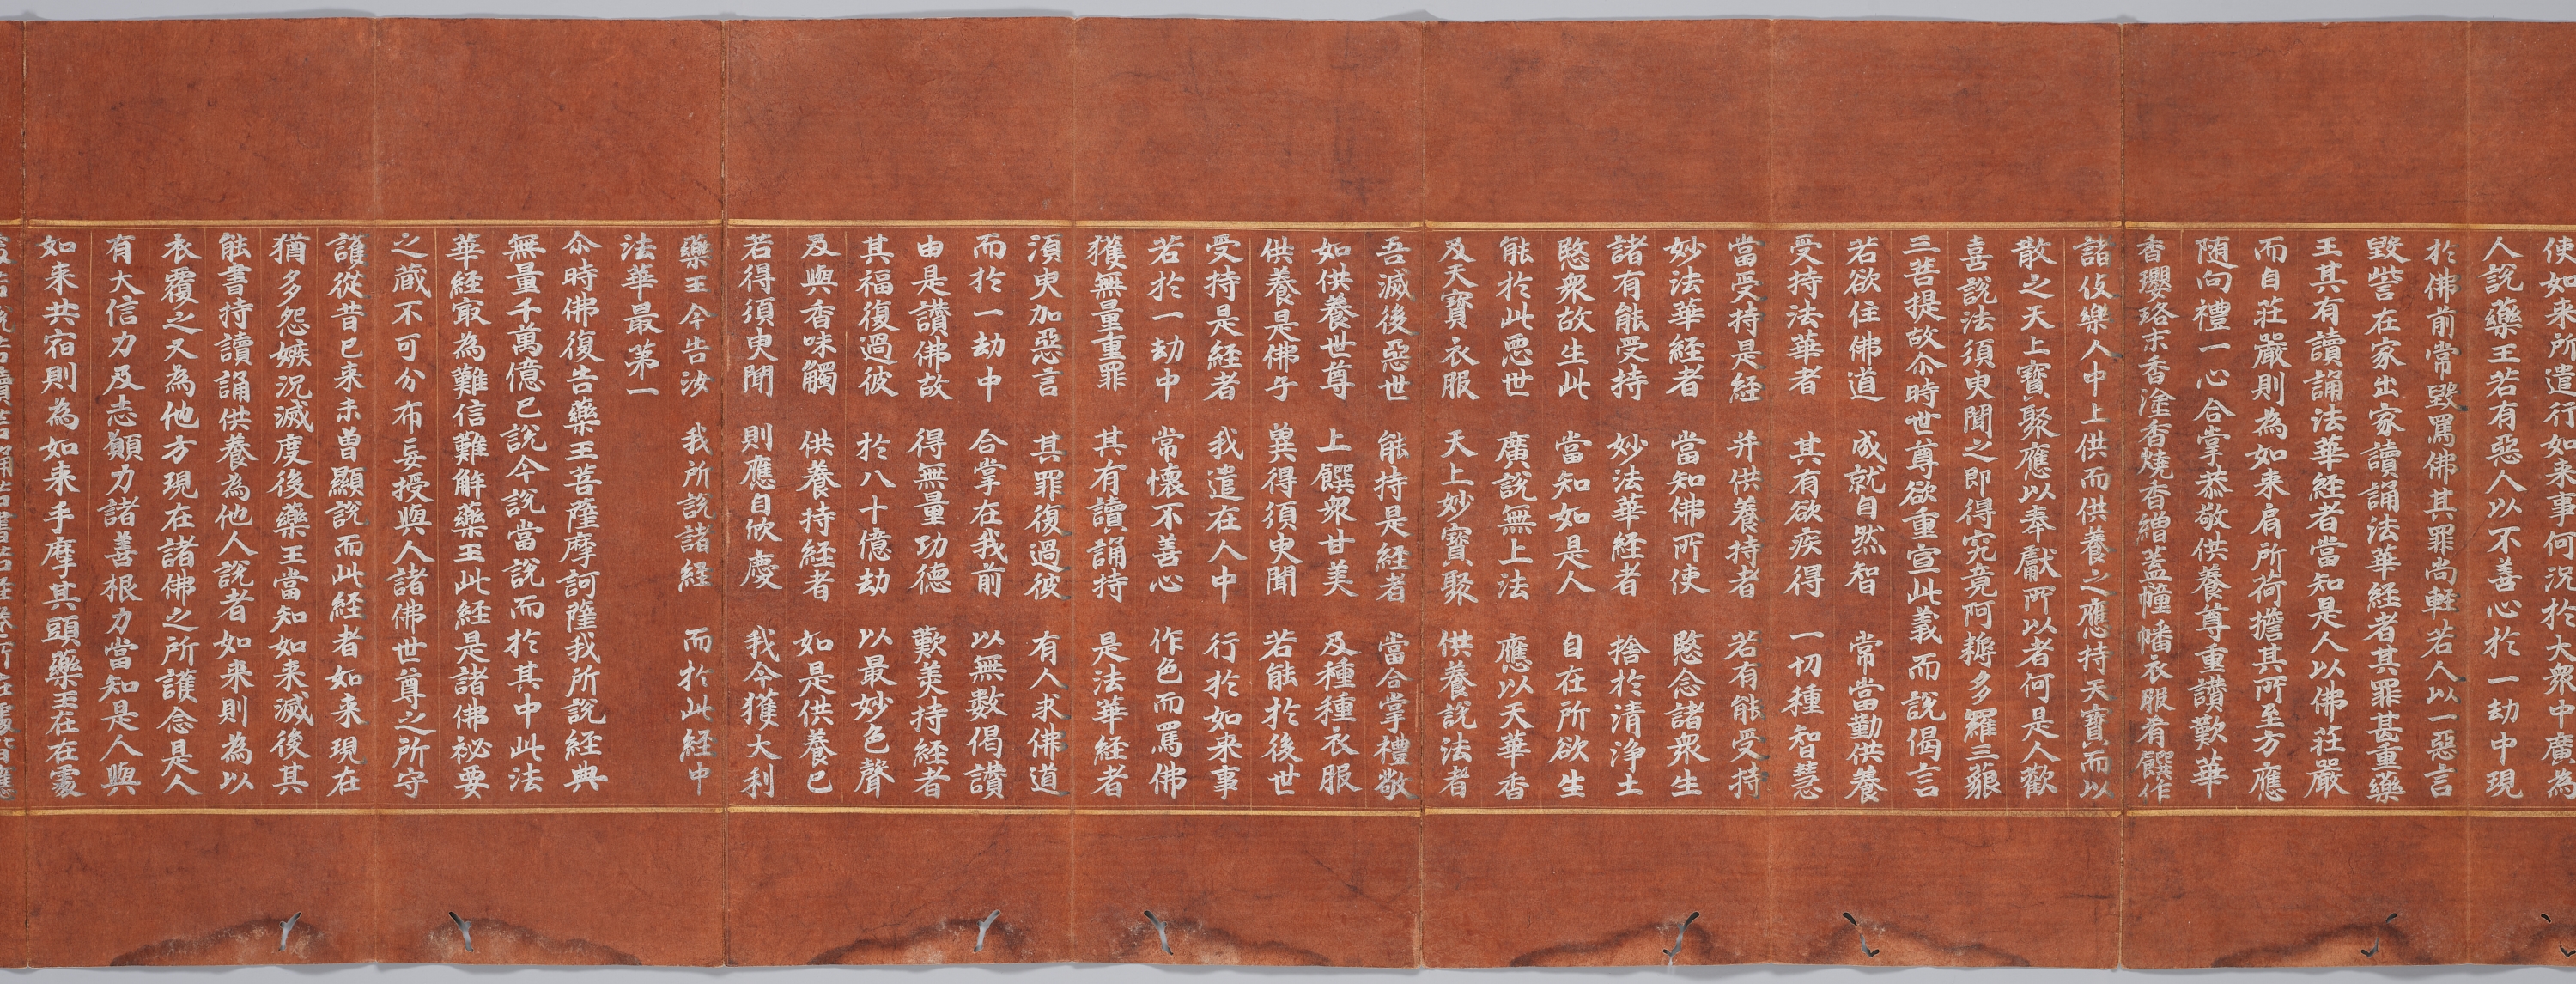 使如来所遣行如来事何況於大衆中廣為
人說藥王若有惡人以不善心於一劫中現
於佛前常毀罵佛其罪尚軽若人以一惡言
毀呰在家出家讀誦法華經者其罪甚重藥
王其有讀誦法華經者當知是人以佛莊嚴
而自莊嚴則為如来肩所荷擔其所至方應
随向禮一心合掌恭敬供養尊重讚歎華
香瓔珞末香塗香燒香繒蓋幢幡衣服肴饌作
諸伎樂人中上供而供養之應持天寶而以
散之天上寶聚應以奉獻所以者何是人歡
喜說法須臾聞之即得究竟阿耨多羅三藐
三菩提故尒時世尊欲重宣此義而說偈言
若欲住佛道　成就自然智　常當勤供養
受持法華者　其有欲疾得　一切種智慧
當受持是經　并供養持者　若有能受持
妙法華經者　當知佛所使　愍念諸衆生
諸有能受持　妙法華經者　捨於清淨土
愍衆故生此　當知如是人　自在所欲生
能於此惡世　廣說無上法　應以天華香
及天寶衣服　天上妙寶聚　供養說法者
吾滅後惡世　能持是經者　當合掌禮敬
如供養世尊　上饌衆甘美　及種種衣服
供養是佛子　兾得須臾聞　若能於後世
受持是經者　我遣在人中　行於如来事
若於一劫中　常懷不善心　作色而罵佛
獲無量重罪　其有讀誦持　是法華經者
須臾加惡言　其罪復過彼　有人求佛道
而於一劫中　合掌在我前　以無數偈讚
由是讚佛故　得無量功德　歎美持經者
其福復過彼　於八十億劫　以最妙色聲
及與香味觸　供養持經者　如是供養已
若得須臾聞　則應自欣慶　我今獲大利
藥王今告汝　我所說諸經　而於此經中
法華最第一
尒時佛復告藥王菩薩摩訶薩我所說經典
無量千萬億已說今說當說而於其中此法
華經㝡為難信難解藥王此經是諸佛祕要
之蔵不可分布妄授與人諸佛世尊之所守
護從昔已来未曾顯說而此經者如来現在
猶多怨嫉況滅度後藥王當知如来滅後其
能書持讀誦供養為他人說者如来則為以
衣覆之又為他方現在諸佛之所護念是人
有大信力及志願力諸善根力當知是人與
如来共宿則為如来手摩其頭藥王在在處